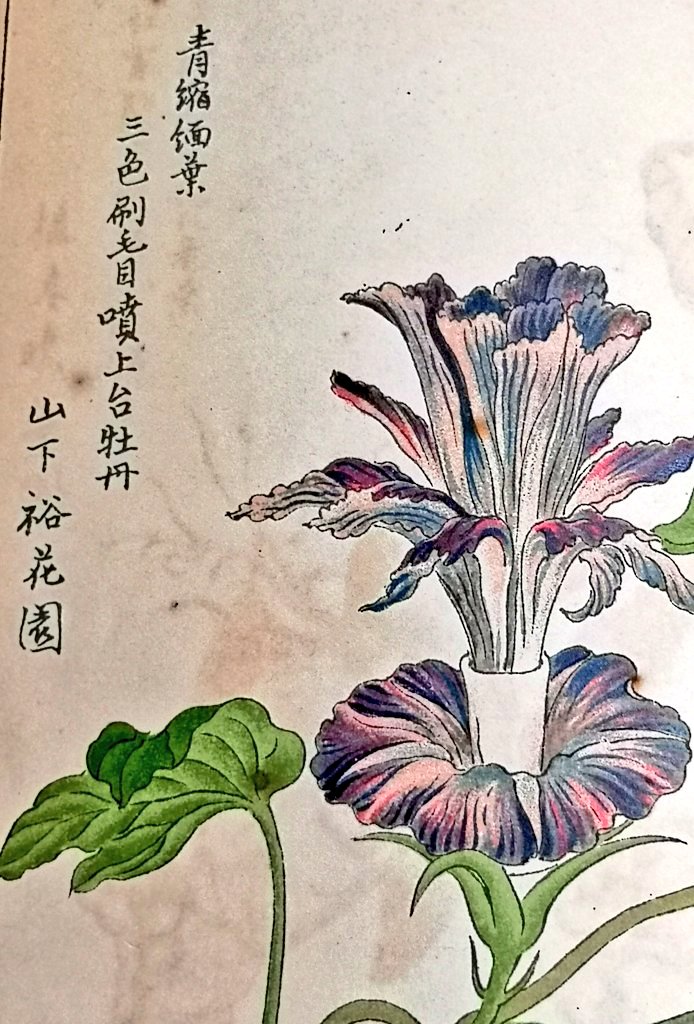 青縮緬葉
三色刷毛目噴上台牡丹
山下裕花園